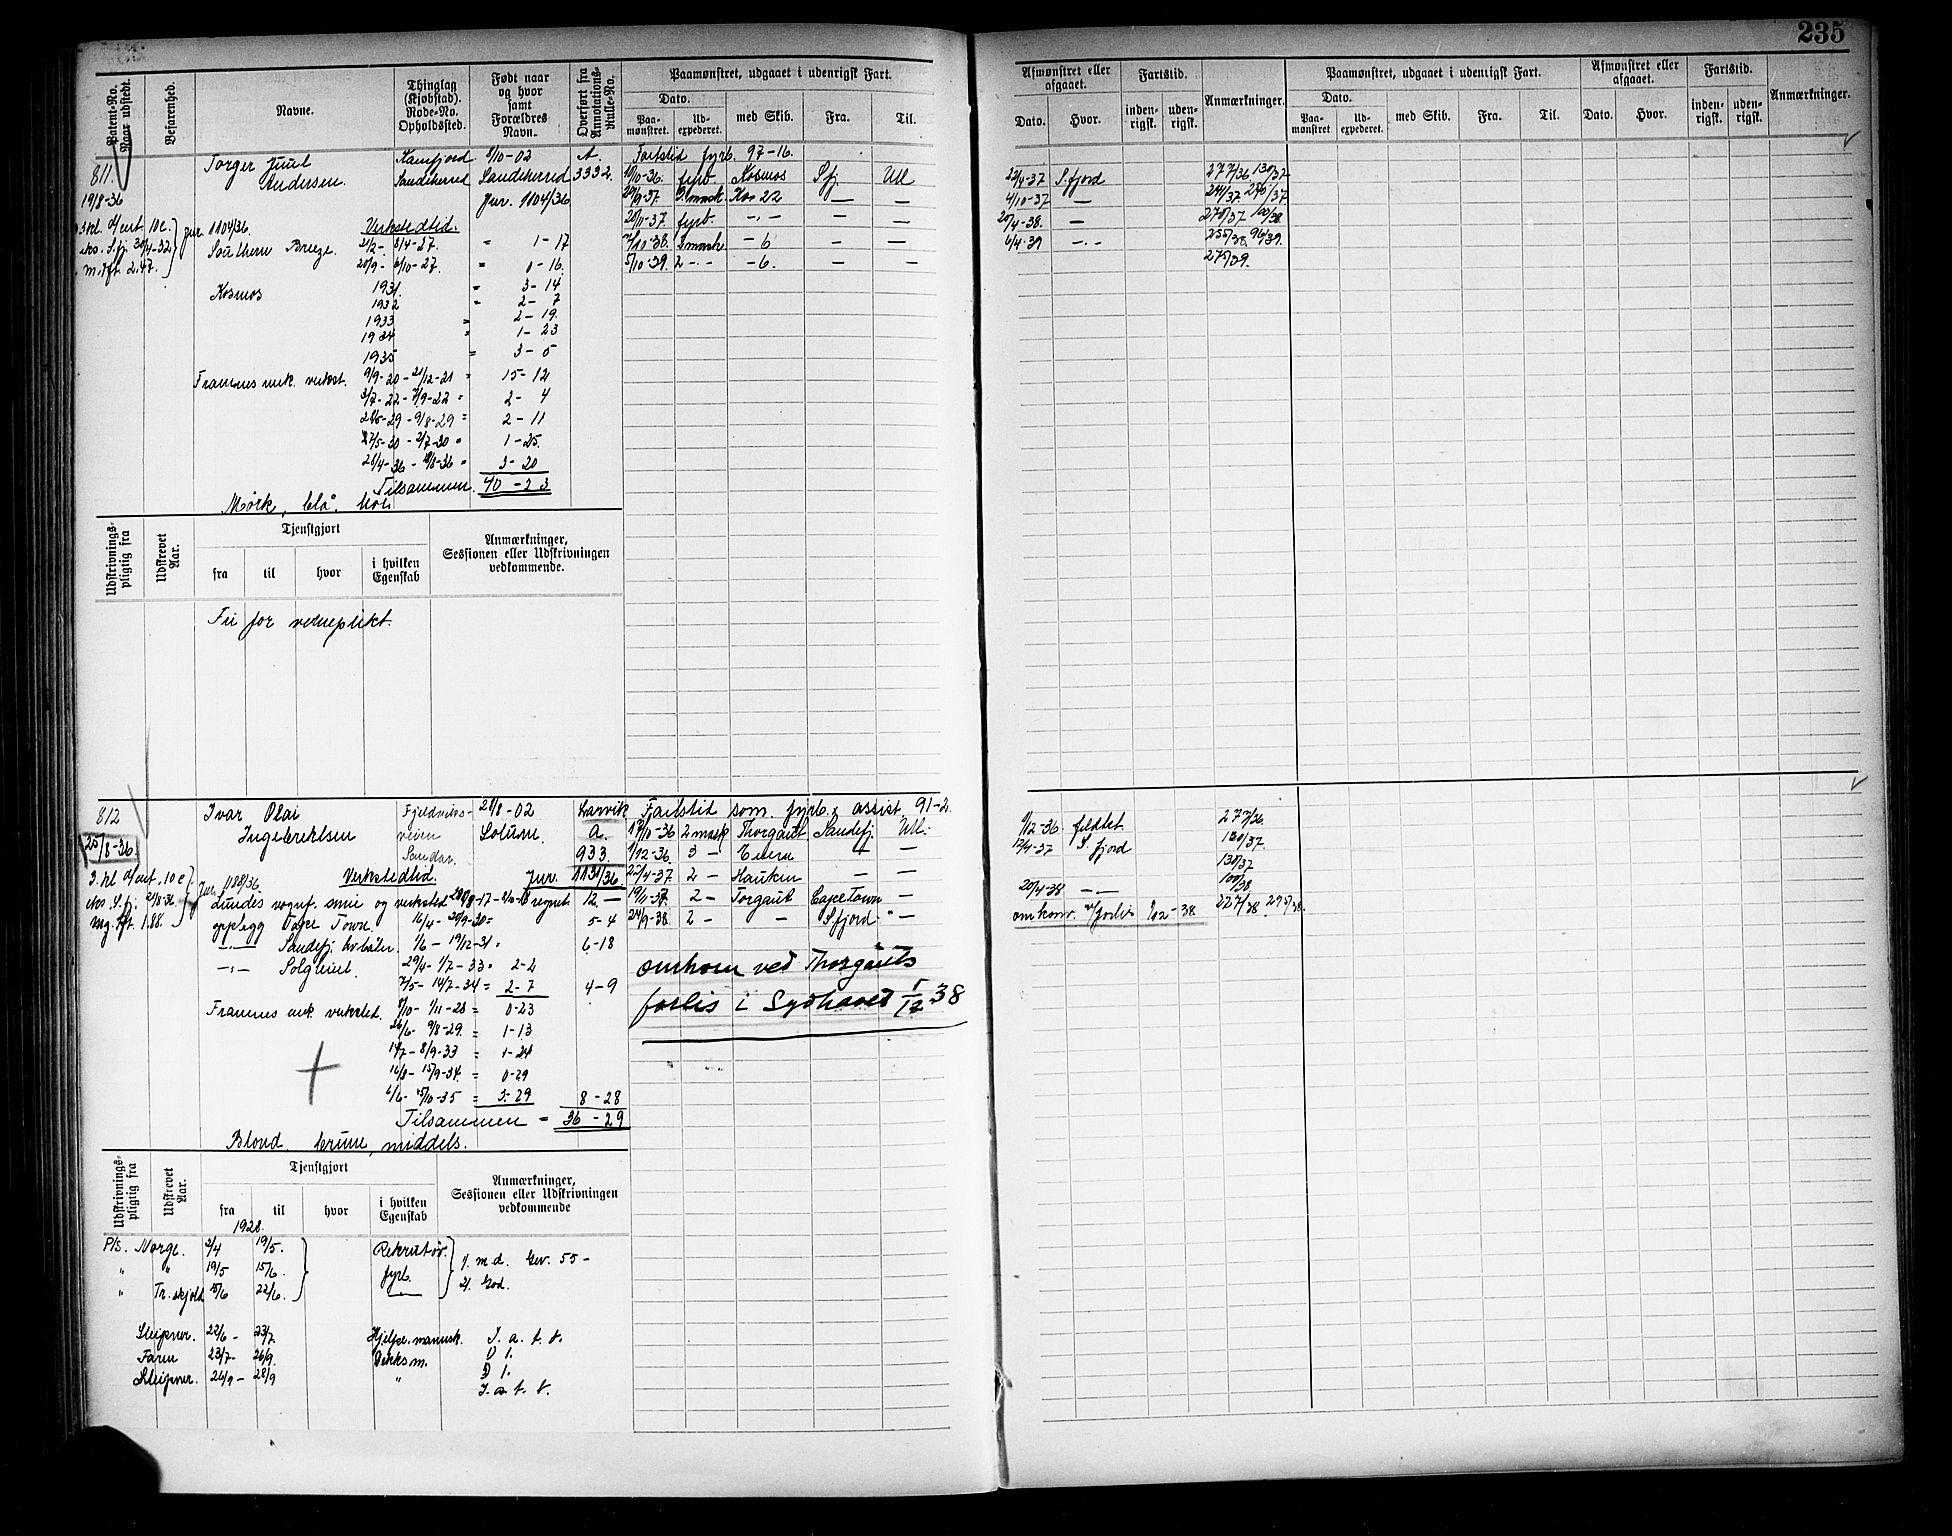 235
Patent-No. Naar udstedt.
Befarenhed.
Navne.
Thinglag (Kjøbstad). Rode-No. Opholdssted.
Født naar og hvor samt Forældres Navn.
Overført fra Annotations-Rulle-No.
Paamønstret, udgaaet i udenrigsk Fart.
Dato.
Paa-mønstret.
Ud-expederet.
med Skib.
Fra.
Til.
Afmønstret eller afgaaet.
Dato.
Hvor.
Fartstid.
inden-rigsk.
uden-rigsk.
Anmærkninger.
Paamønstret, udgaaet i udenrigsk Fart.
Dato.
Paa-mønstret.
Ud-expederet.
med Skib.
Fra.
Til.
Afmønstret eller afgaaet.
Dato.
Hvor.
Fartstid.
inden-rigsk.
uden-rigsk.
Anmærkninger.
811.
19/8-36
Torger Juul
Andersen.
Sandeherred
8/10-02
Sandeherred
Jur. 1104/36
A.
3332.
Fartstid fyrb. 97-16.
10/10-36. fyrb. Kosmos S.fj. Ull
29/9-37. 2. mask. Kos 22 — —
20/11-37. fyrb. -"-
7/10-38. 2 maski — 6 — —
5/10-39. 2 -"- — 6. — —
22/4-37 S.fjord 277/36. 130/37
4/10-37 — 241/37 276/37
20/4-38. — 270/37 100/38.
6/4-39 -"- 255/38. 96/39.
275/39.
jur. 1104/36. Verkstedtid.
Southern Breeze. 2/2- 8/4-27. " 1-17
20/9- 6/10-27. " 0-16.
Kosmos 1931. " 3-14
1932 " 2-7
1933 " 2-19.
1934 " 1-23
1935 = 3-5
Framnes mek. verkst. 9/9-20 - 21/12-21 = 15-12
3/7-22 - 7/9-22 " 2-4
28/5-29 - 9/8-29 = 2-11
27/5-30 - 2/7-30 " 1-25.
28/4-36 - 18/8-36 " 3-20
Tilsammen. 40-23
Mørk, blå, høi
Udskrivnings-pligtig fra
Udskrevet Aar.
Tjenstgjort
fra
til
hvor
i hvilken Egenskab
Anmærkninger, Sessionen eller Udskrivningen vedkommende.
Fri for verneplikt.
812
25/8-36.
Ivar Olai
Ingebrektsen
Fjeldviks-
veien
Sandar.
28/8-02
Solum
Larvik
a.
933.
Jur. 1131/36.
Fartstid som fyrb. & assist. 91-2.
17/10-36 2 mask Thorgaut Sandefj. Ull.
1/12-36. 3 — — —
22/4-37. 2 — Hauken — —
19/11-37. 2 — Torgaut Cape Town —
24/9-38. 2 — — S.fjord " —
1/12-36 feltet 277/36.
12/4-37 S.fjord 130/37.
130/37
20/4-38 — — 100/38
omkom v/forlis 1/12-38 227/38. 295/38.
Jur. 1188/36. Verkstedtid.
opplegg Cape Town. 16/4- 20/9-30= 5-4
-"- Sandefj. 1/6 - 19/12-31 = 6-18
-"- Solglimt. 29/4- 1/7-33 " 2-2
7/5- 14/7-34 = 2-7 4-9
Framnes mek. verksted. 8/10- 1/11-28 = 0-23
26/6- 9/8-29. = 1-13
14/7- 8/9-33 = 1-24
16/8- 15/9-34. = 0-29
6/6- 5/10-35 = 3-29 8-28
Tilsammen = 36-29
omkom ved Thorgauts
forlis i Sydhavet 1/12 38
Blond, brune, middels.
Udskrivnings-pligtig fra
Udskrevet Aar.
Tjenstgjort
fra
til
hvor
i hvilken Egenskab
Anmærkninger, Sessionen eller Udskrivningen vedkommende
1928.
P/s. Norge. 3/4 19/5. Rekruttøv. 1. m. d. Gev. 55 -
" " 19/5 15/6. fyrb. 2. God.
" Tr.skjold 15/6 22/6. —
Sleipner. 22/6- 23/7. Hjelpe.mannsk.
Farm 23/7- 26/9. Dekksm.
Sleipner. 26/9- 28/9 "